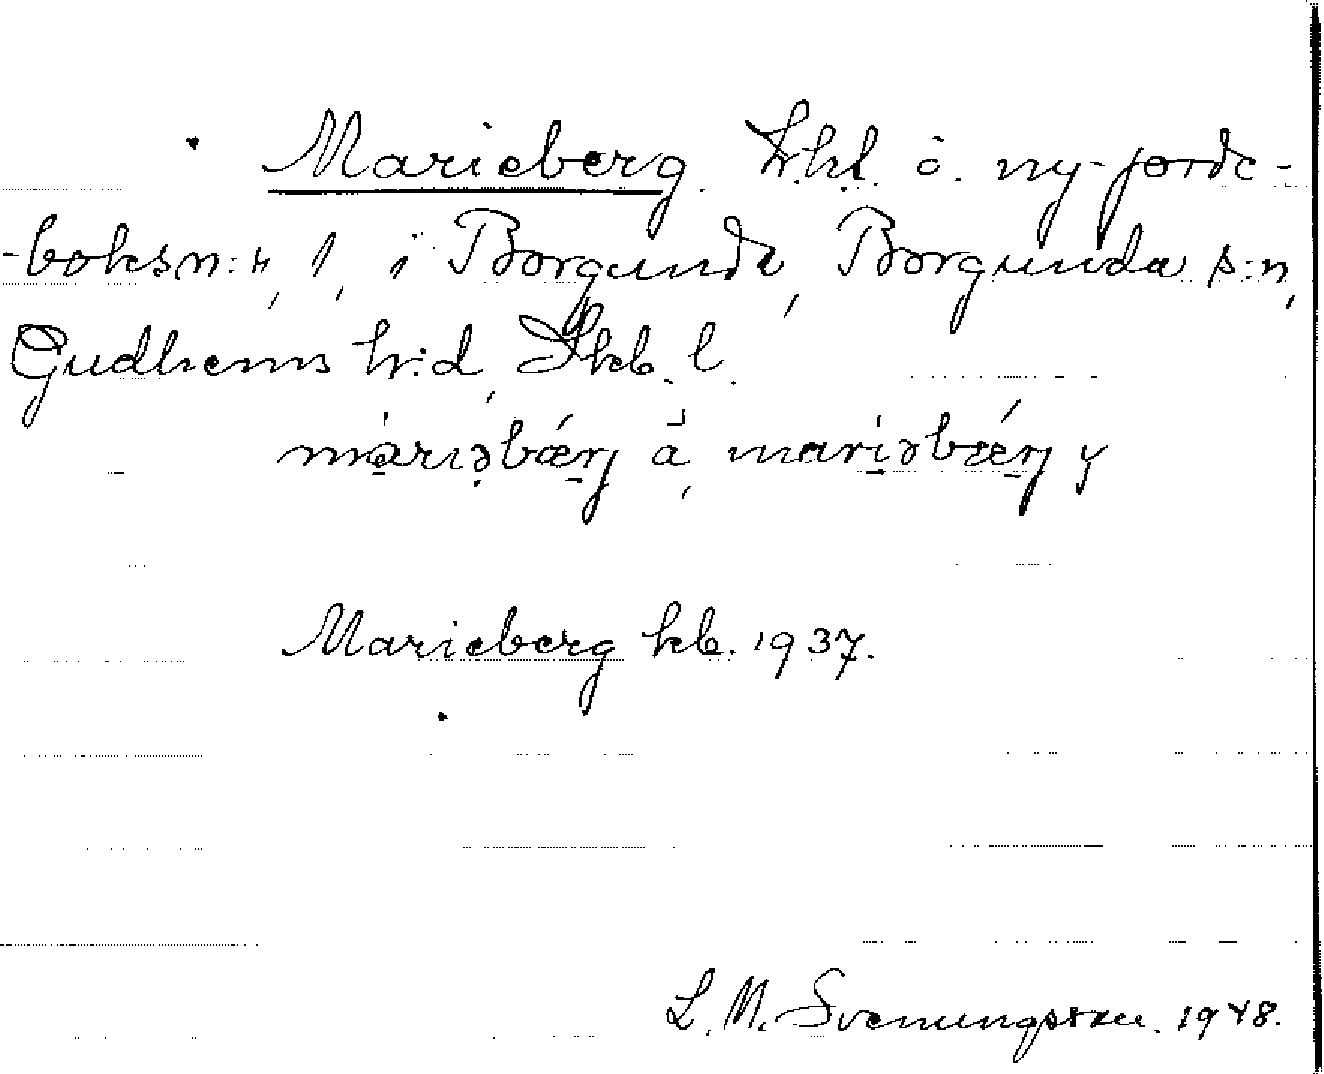 Marieberg. Lht. o. ny jorde-
-boksn:r, 1, i Borgunda, Borgunda s:n,
Gudhems h:d, Skb. l.
mariəbærj å, mariəbærj y
Marieberg kb. 1937.
L. M. Svenungsson. 1948.